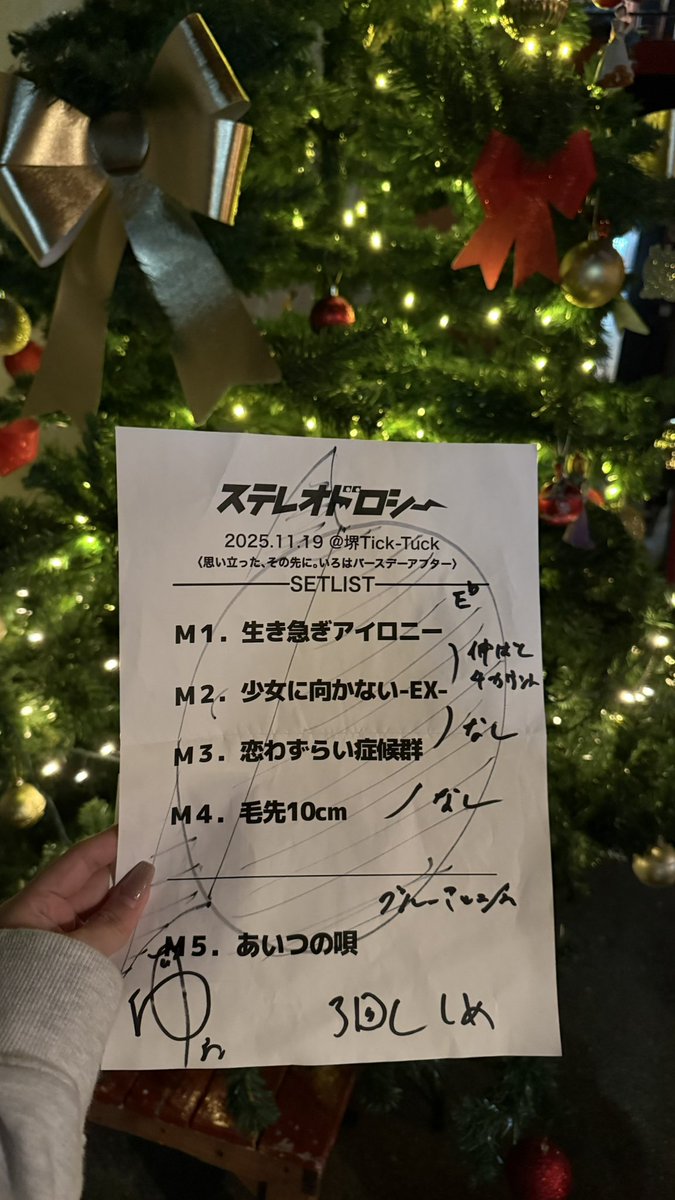 ステレオドロシー
2025.11.19 @堺Tick-Tuck
〈思い立った、その先に。いろはバースデーアフター〉
SETLIST
E♭
M1. 生き急ぎアイロニー
M2. 少女に向かない-EX-
4カウント
なし
M3. 恋わずらい症候群
M4. 毛先10cm
なし
M5. あいつの唄
3回ししめ